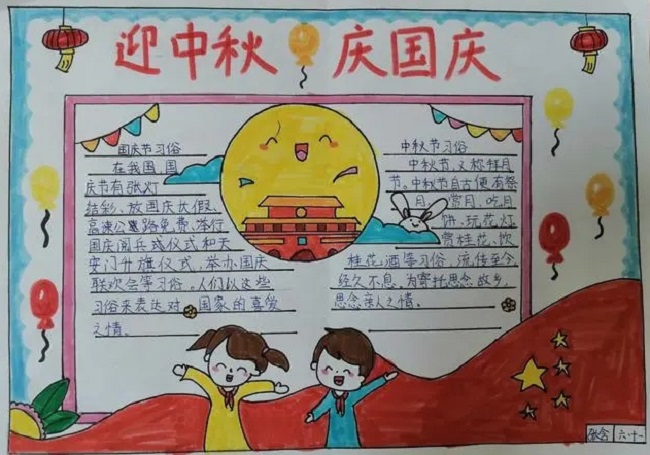 迎中秋 庆国庆
国庆节习俗
在我国,国
庆节有张灯
结彩、放国庆大假、
高速公路免费、举行
国庆阅兵式仪式和天
安门升旗仪式,举办国庆
联欢会等习俗。人们以这些
习俗来表达对 国家的喜爱
之情。
中秋节习俗
中秋节,又称拜月
节。中秋节自古便有祭
月、赏月、吃月
饼、玩花灯
赏桂花、饮
桂花酒等习俗,流传至今,
经久不息,为寄托思念故乡,
思念亲人之情。
六·十一